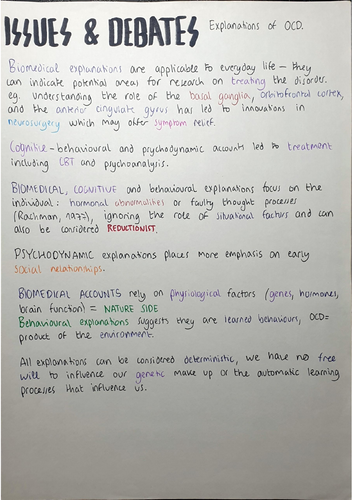 ISSUES & DEBATES Explanations of OCD.
Biomedical explanations are applicable to everyday life - they
can indicate potential areas for research on treating the disorder.
eg. understanding the role of the basal ganglia, orbitofrontal cortex,
and the anterior cingulate gyrus has led to innovations in
neurosurgery which may offer symptom relief.
Cognitive-behavioural and psychodynamic accounts led to treatment
including CBT and psychoanalysis.
BIOMEDICAL, COGNITIVE and behavioural explanations focus on the
individual: hormonal abnormalities or faulty thought processes
(Rachman, 1977), ignoring the role of situational factors and can
also be considered REDUCTIONIST.
PSYCHODYNAMIC explanations places more emphasis on early
social relationships.
BIOMEDICAL ACCOUNTS rely on physiological factors (genes, hormones,
brain function) = NATURE SIDE
Behavioural explanations suggests they are learned behaviours, OCD=
product of the environment.
All explanations can be considered deterministic, we have no free
will to influence our genetic make up or the automatic learning
processes that influence us.